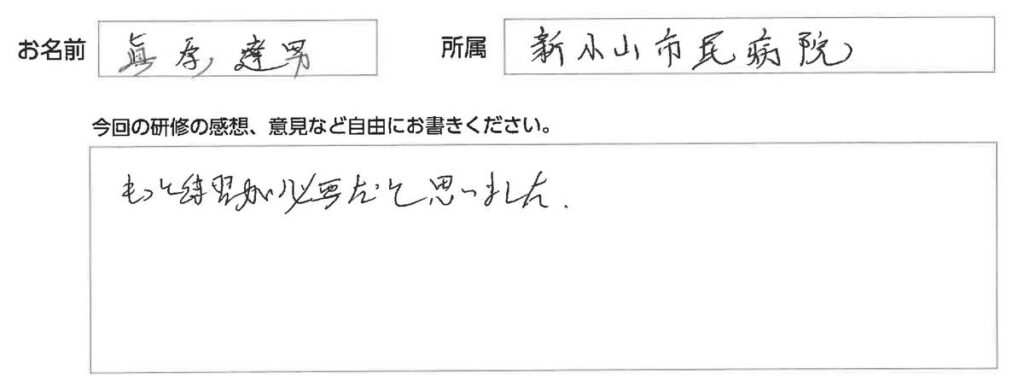 お名前 眞原達男 所属 新小山市民病院
今回の研修の感想、意見など自由にお書きください。
もっと練習が必要だと思いました.